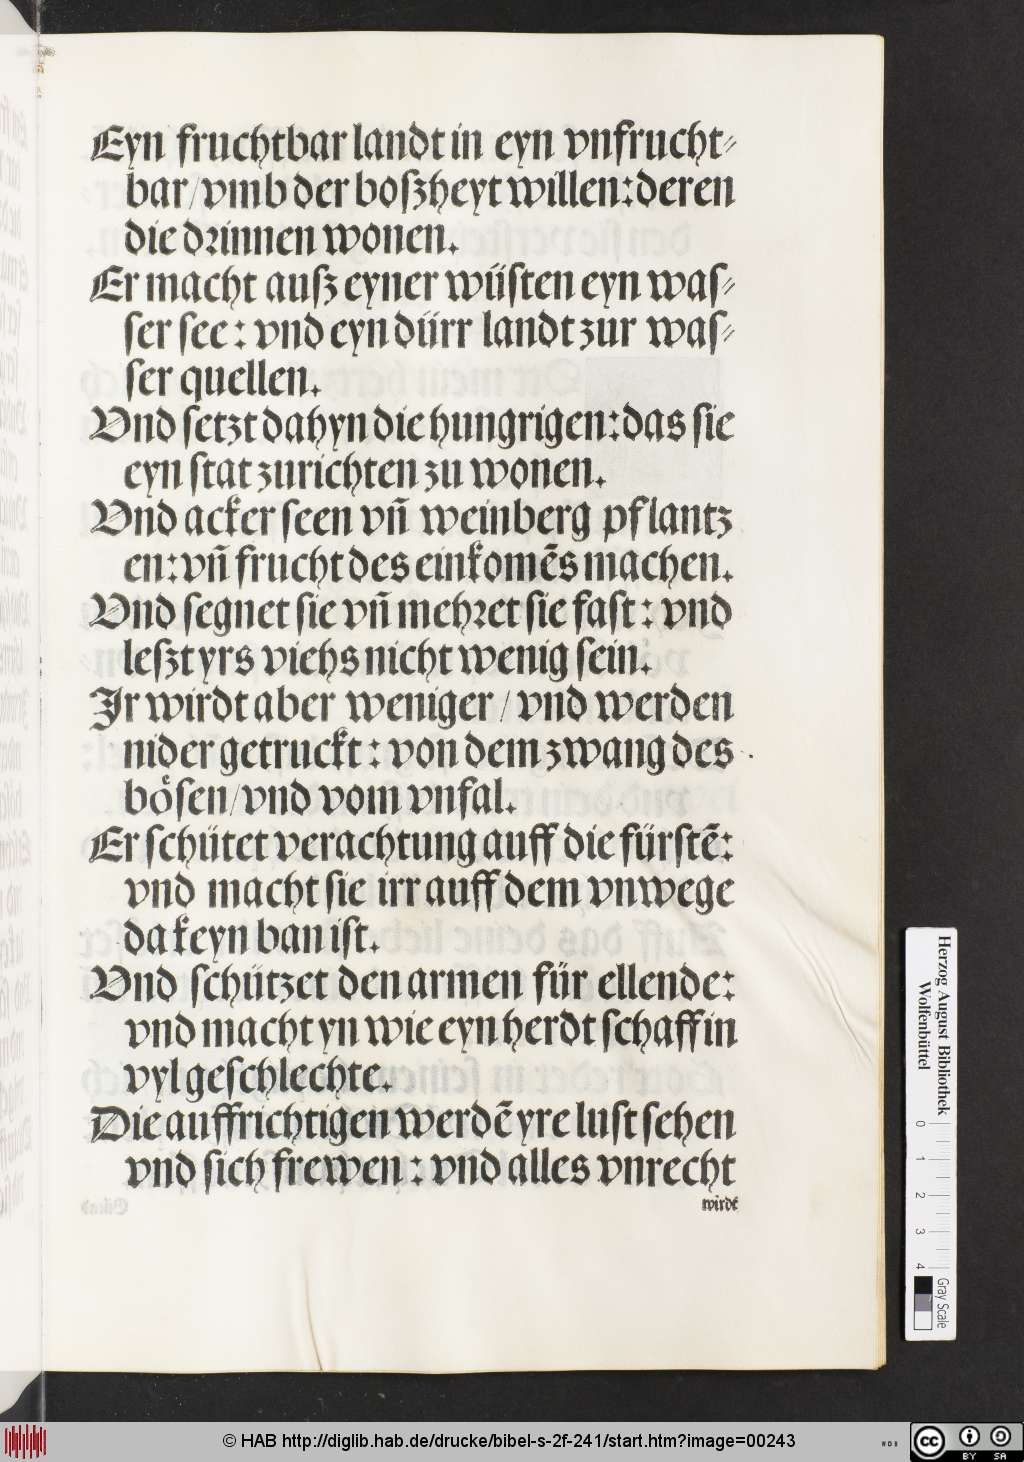 Eyn fruchtbar landt in eyn vnfrucht⸗
bar/vmb der boſzheyt willen:deren
die drinnen wonen.
Er macht auſz eyner wüſten eyn waſ⸗
ſer ſee: vnd eyn dürr landt zur waſ⸗
ſer quellen.
Vnd ſetzt dahyn die hungrigen:das ſie
eyn ſtat zurichten zu wonen.
Vnd acker ſeen vñ weinberg pflantz
en:vñ frucht des einkomẽs machen.
Vnd ſegnet ſie vñ mehret ſie faſt: vnd
leſzt yrs viehs nicht wenig ſein.
Ir wirdt aber weniger/vnd werden
nider getruckt: von dem zwang des
böſen/vnd vom vnfal.
Er ſchütet verachtung auff die fürſtẽ:
vnd macht ſie irr auff dem vnwege
da keyn ban iſt.
Vnd ſchützet den armen für ellende:
vnd macht yn wie eyn herdt ſchaff in
vyl geſchlechte.
Die auffrichtigen werdẽ yre luſt ſehen
vnd ſich frewen: vnd alles vnrecht
wirdt
Herzog August Bibliothek
Wolfenbüttel
0 1 2 3 4
Gray Scale
© HAB http://diglib.hab.de/drucke/bibel-s-2f-241/start.htm?image=00243
WDB
cc BY SA